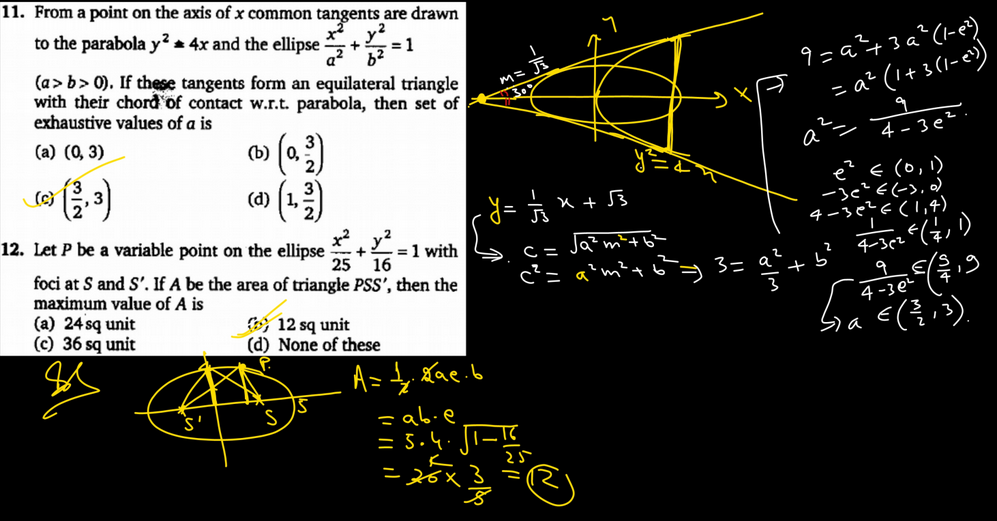 11. From a point on the axis of x common tangents are drawn
to the parabola y² = 4x and the ellipse x²/a² + y²/b² = 1
(a > b > 0). If these tangents form an equilateral triangle
with their chord of contact w.r.t. parabola, then set of
exhaustive values of a is
(a) (0, 3)
(b) (0, 3/2)
(c) (3/2, 3)
(d) (1, 3/2)
12. Let P be a variable point on the ellipse x²/25 + y²/16 = 1 with
foci at S and S′. If A be the area of triangle PSS′, then the
maximum value of A is
(a) 24 sq unit
(b) 12 sq unit
(c) 36 sq unit
(d) None of these
y
m = 1/√3
30°
x
y² = 4x
y = 1/√3 x + √3
c = √(a²m² + b²)
c² = a²m² + b² ⇒ 3 = a²/3 + b²
9 = a² + 3a²(1-e²)
= a²(1+3(1-e²))
a² = 9/(4-3e²)
e² ∈ (0, 1)
-3e² ∈ (-3, 0)
4-3e² ∈ (1, 4)
1/(4-3e²) ∈ (1/4, 1)
9/(4-3e²) ∈ (9/4, 9
a ∈ (3/2, 3).
P
S'
S
5
A = 1/2 · 2ae · b
= ab·e
= 5·4·√(1-16/25)
= 20 × 3/5 = 12